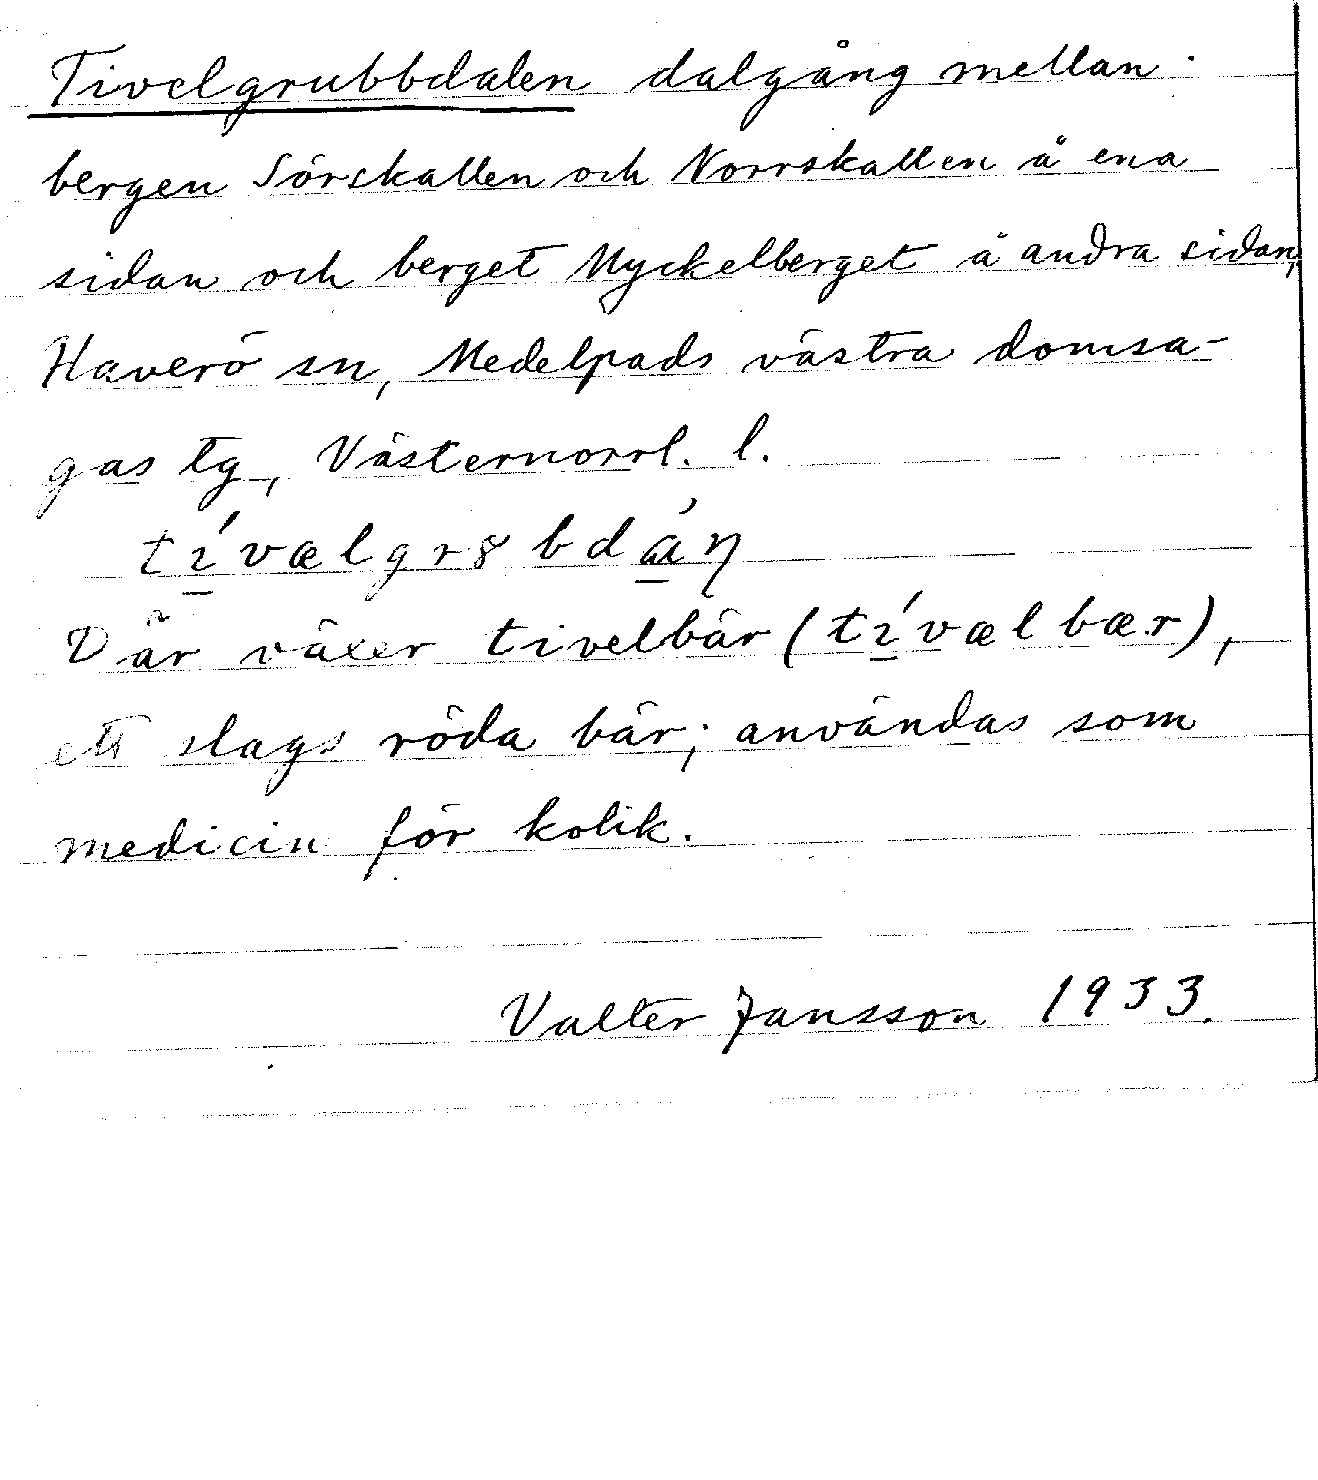 Tivelgrubbdalen dalgång mellan
bergen Sörskallen och Norrskallen å ena
sidan och berget Nyckelberget å andra sidan,
Haverö sn, Medelpads västra domsa-
gas tg, Västernorrl. l.
tívælgr8bdáη
Där växer tivelbär (tívælbær),
ett slags röda bär; användas som
medicin för kolik.
Valter Jansson 1933.